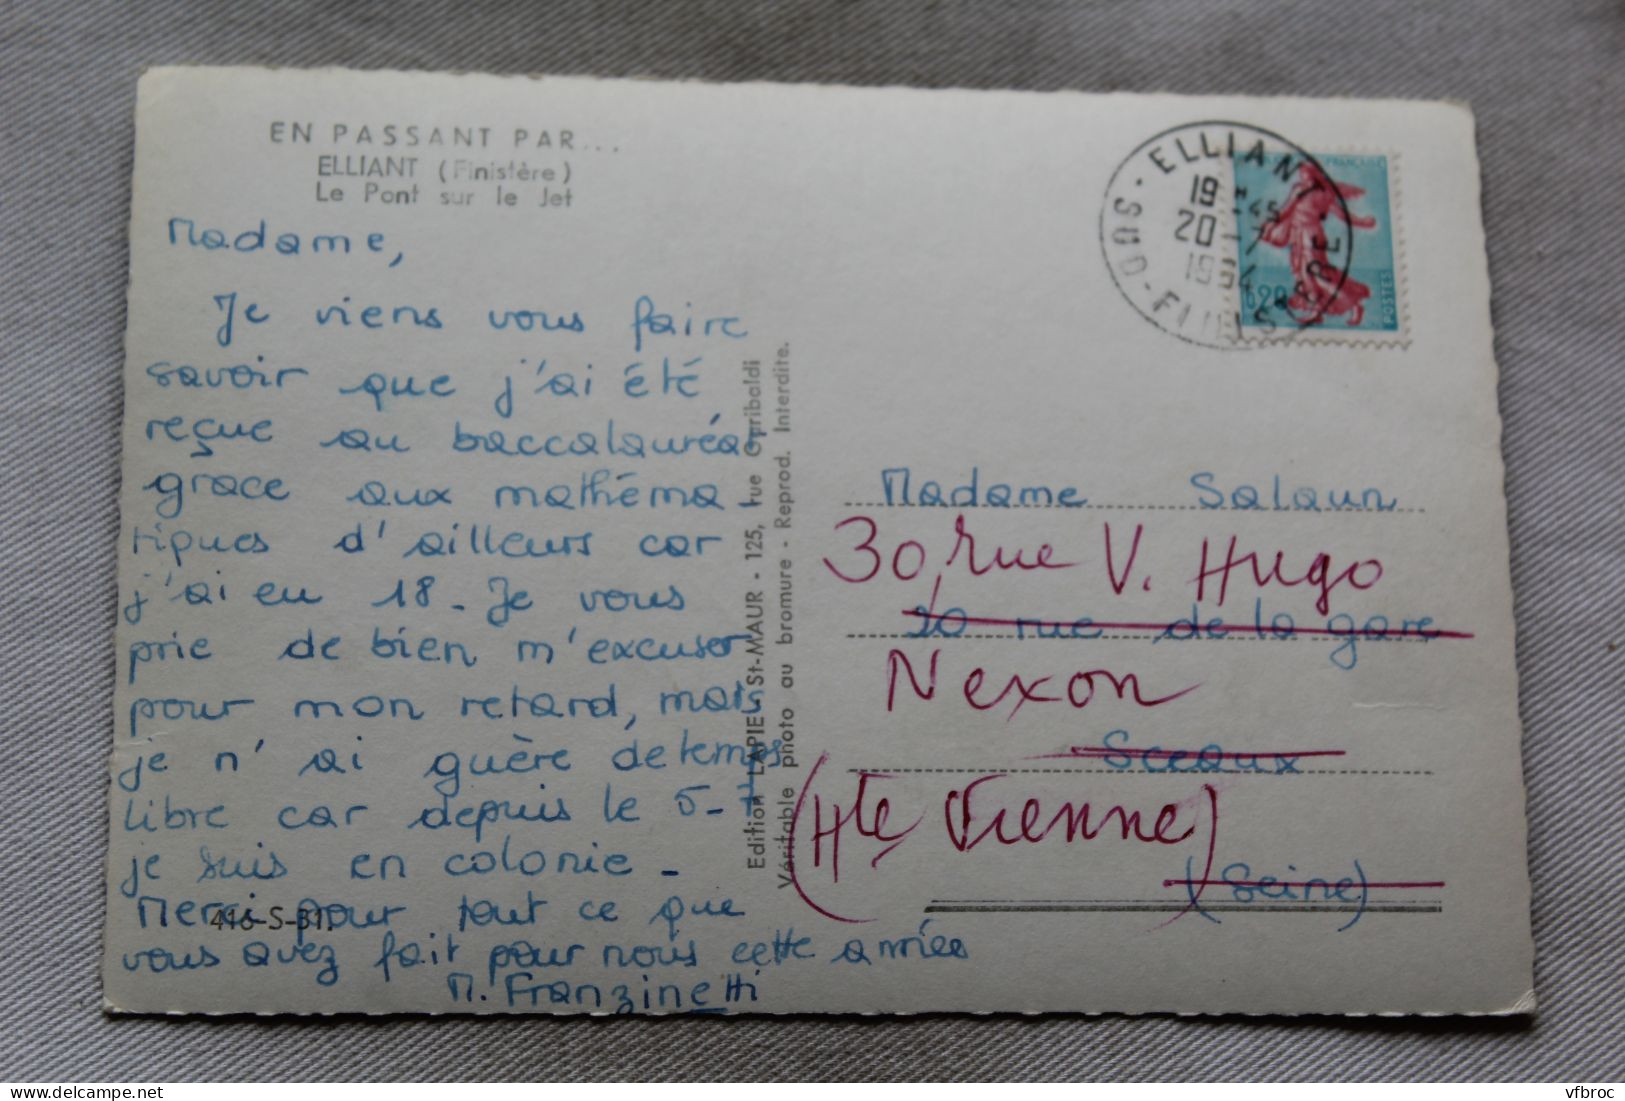 EN PASSANT PAR...
ELLIANT (Finistère)
Le Pont sur le Jet
Madame,
Je viens vous faire
savoir que j'ai été
reçue au baccalauréa
grâce aux mathéma-
tiques d'ailleurs car
j'ai eu 18 - Je vous
prie de bien m'excuser
pour mon retard, mais
je n'ai guère de temps
libre car depuis le 5-7
je suis en colonie -
Merci pour tout ce que
vous avez fait pour nous cette année
M. Franzinetti
416-S-31.
Edition LAPIE - St-MAUR - 125, rue Garibaldi
Véritable photo au bromure - Reprod. Interdite.
ELLIANT
19 H -45
20 -7
19
SUD
FINISTERE
FRANÇAISE
0,20
POSTES
Madame Salaun
30, rue V. Hugo
20 rue de la gare
Nexon
Sceaux
(Hte Vienne)
(Seine)
delcampe.net
vfbroc